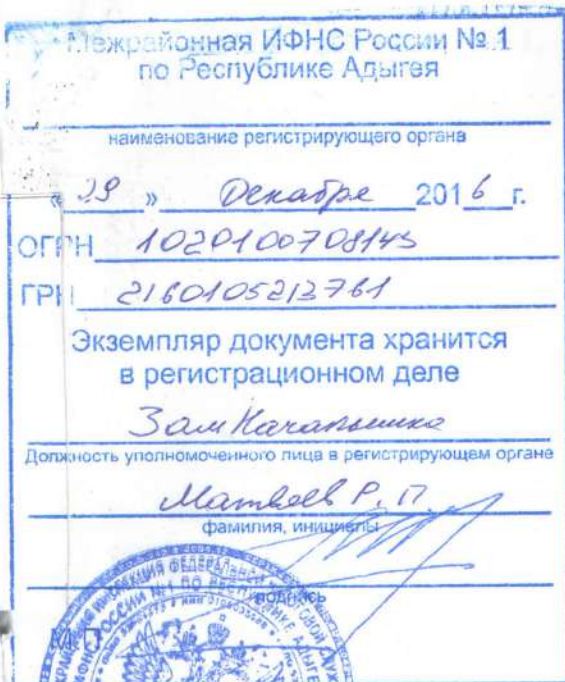 Межрайонная ИФНС России № 1
по Республике Адыгея
наименование регистрирующего органа
« 29 » Декабря 2016 г.
ОГРН 1020100708145
ГРН 2160105213761
Экземпляр документа хранится
в регистрационном деле
Зам Начальника
Должность уполномоченного лица в регистрирующем органе
Матвеев Р. П.
фамилия, инициалы
подпись
М.П.